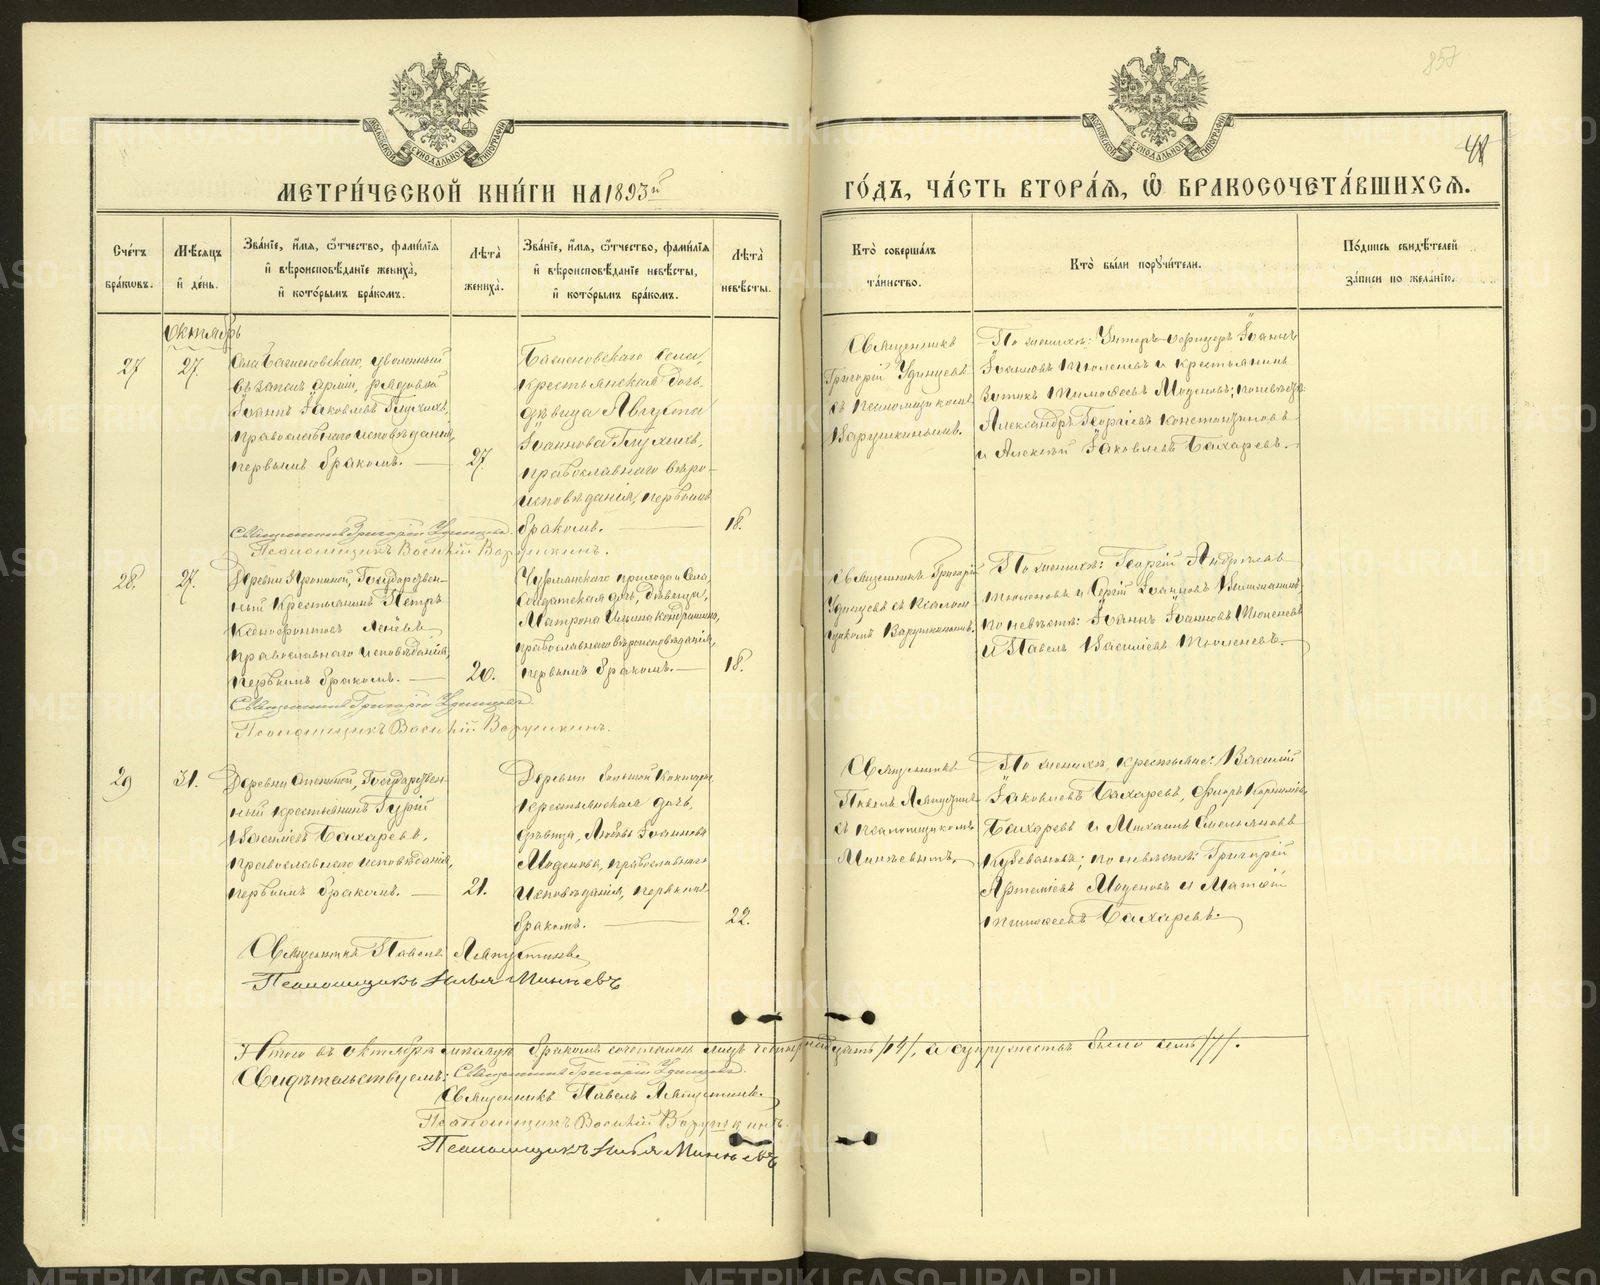 857
48
МЕТРИ́ЧЕСКОЙ КНИ́ГИ НА 1893й
ГО́ДЪ, ЧА́СТЬ ВТОРА́Я, Ѽ БРАКОСОЧЕТА́ВШИХСЯ.
Сче́тъ бра́кωвъ.
Мѣ́сяцъ и҆ де́нь.
Зва́нїе, и҆́мя, ѻ҆́тчество, фами́лїя
и҆ вѣроисповѣ́данїе жениха̀,
и҆ кото́рымъ бра́комъ.
Лѣта̀ жениха̀.
Зва́нїе, и҆́мя, ѻ҆́тчество, фами́лїя
и҆ вѣроисповѣ́данїе невѣ́сты,
и҆ кото́рымъ бра́комъ.
Лѣта̀ невѣ́сты.
Кто̀ соверша́лъ
та́инство.
Кто̀ бы́ли порꙋчи́тели.
По́дпись свидѣ́телей
за́писи по жела́нїю.
Октябрь
27
27.
Села уволенный
въ запасъ Арміи, рядовой
Іоаннъ Іаковлевъ Глухихъ,
православнаго исповѣданія,
первымъ бракомъ.
27
села,
крестьянская дочь
дѣвица Августа
Іоаннова Глухихъ,
православнаго вѣро-
исповѣданія, первымъ
бракомъ.
18.
Священникъ
Григорій Удинцевъ
съ псаломщикомъ
Варушкинымъ.
По женихѣ: Унтеръ-офицеръ Іоаннъ
Іоанновъ Тюленевъ и крестьянинъ
Тимофеевъ Моденовъ; по невѣстѣ:
Александръ Георгіевъ Константиновъ
и Алексѣй Іаковлевъ Бахаревъ.
Священникъ Григорій Удинцевъ.
Псаломщикъ Василій Варушкинъ.
28.
27.
Деревни Государствен-
ный крестьянинъ Петръ
Ксенофонтовъ
православнаго исповѣданія,
первымъ бракомъ.
20.
прихода и села,
Солдатская дочь, дѣвица,
Матрона
православнаго вѣроисповѣданія,
первымъ бракомъ.
18.
Священникъ Григорій
Удинцевъ съ псалом-
щикомъ Варушкинымъ.
По женихѣ: Георгій Андреевъ
и Сергій Іоанновъ
по невѣстѣ: Іоаннъ Іоанновъ Тюленевъ
и Павелъ Василіевъ Тюленевъ.
Священникъ Григорій Удинцевъ.
Псаломщикъ Василій Варушкинъ.
29
31.
Деревни Государствен-
ный крестьянинъ Гурій
Василіевъ Бахаревъ,
православнаго исповѣданія,
первымъ бракомъ.
21.
Деревни большой
крестьянская дочь,
дѣвица, Любовь Іоаннова
Моденова, православнаго
исповѣданія, первымъ
бракомъ.
22.
Священникъ
Павелъ Ляпустинъ
съ псаломщикомъ
Минѣевымъ.
По женихѣ, крестьяне: Василій
Іаковлевъ Бахаревъ,
Бахаревъ и Михаилъ Емельяновъ
по невѣстѣ: Григорій
Артеміевъ Моденовъ и Матѳій
Тимофеевъ Бахаревъ.
Священникъ Павелъ Ляпустинъ
Псаломщикъ Илья Минѣевъ
Итого въ Октябрѣ мѣсяцѣ бракомъ сочеталось лицъ четырнадцать /14/, а супружествъ было семь /7/.
Свидѣтельствуемъ: Священникъ Григорій Удинцевъ.
Священникъ Павелъ Ляпустинъ.
Псаломщикъ Василій Варушкинъ.
Псаломщикъ Илья Минѣевъ
METRIKI.GASO-URAL.RU